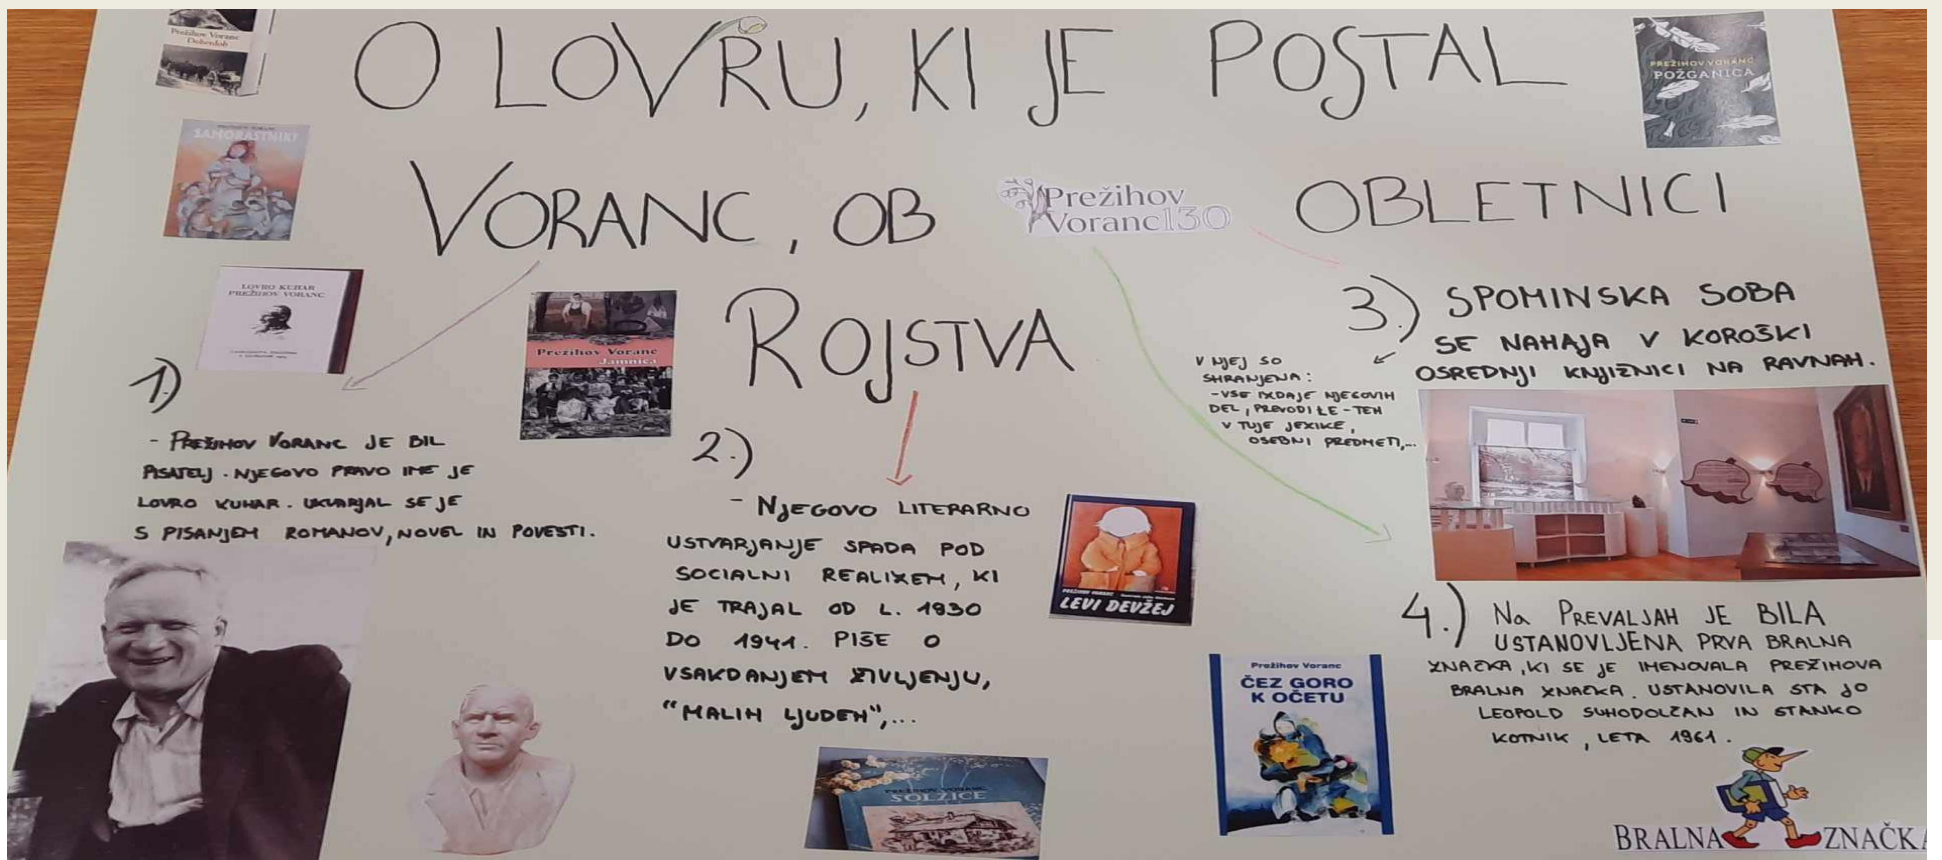 Prežihov Voranc
Doberdob
O LOVRU, KI JE POSTAL
PREŽIHOV VORANC
POŽGANICA
SAMORASTNIKI
VORANC, OB
Prežihov
Voranc130
OBLETNICI
ROJSTVA
LOVRO KUHAR
PREŽIHOV VORANC
Prežihov Voranc
Jamnica
1.)
- PREŽIHOV VORANC JE BIL
PISATELJ. NJEGOVO PRAVO IME JE
LOVRO KUHAR. UKVARJAL SE JE
S PISANJEM ROMANOV, NOVEL IN POVESTI.
2.)
- NJEGOVO LITERARNO
USTVARJANJE SPADA POD
SOCIALNI REALIZEM, KI
JE TRAJAL OD L. 1930
DO 1941. PIŠE O
VSAKDANJEM ŽIVLJENJU,
"MALIH LJUDEH",...
PREŽIHOV VORANC
LEVI DEVŽEJ
PREŽIHOV VORANC
SOLZICE
Prežihov Voranc
ČEZ GORO
K OČETU
3.) SPOMINSKA SOBA
SE NAHAJA V KOROŠKI
OSREDNJI KNJIŽNICI NA RAVNAH.
V NJEJ SO
SHRANJENA:
-VSE IZDAJE NJEGOVIH
DEL, PREVODI LE-TEH
V TUJE JEZIKE,
OSEBNI PREDMETI,...
4.) Na PREVALJAH JE BILA
USTANOVLJENA PRVA BRALNA
ZNAČKA, KI SE JE IMENOVALA PREŽIHOVA
BRALNA ZNAČKA. USTANOVILA STA JO
LEOPOLD SUHODOLČAN IN STANKO
KOTNIK, LETA 1961.
BRALNA ZNAČKA